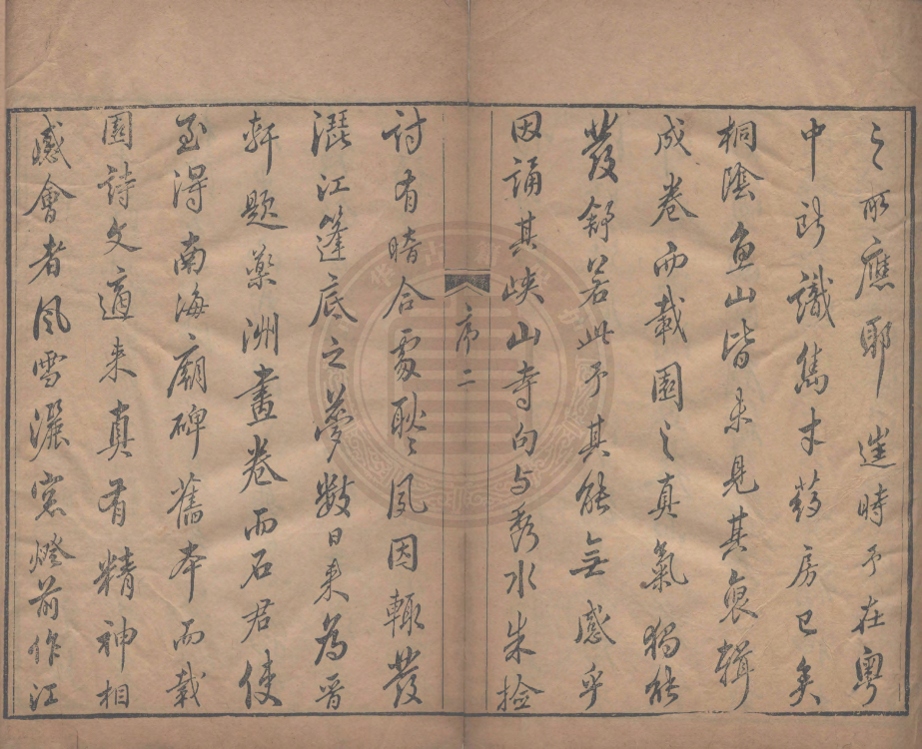 之所應耶進時予在粵
中所識雋才藥房已矣
桐陰魚山皆未見其裒輯
成卷而載園之真氣獨能
發舒若此予其能無感乎
因誦其峽山寺句与秀水朱
序二
討有暗合處耿耿夙因輒發
江篷底之夢數日來為晉
軒題藥洲畫卷而石君使
至得南海廟碑舊本而載
園詩文適來真有精神相
感會者風雪灑窓燈前作江